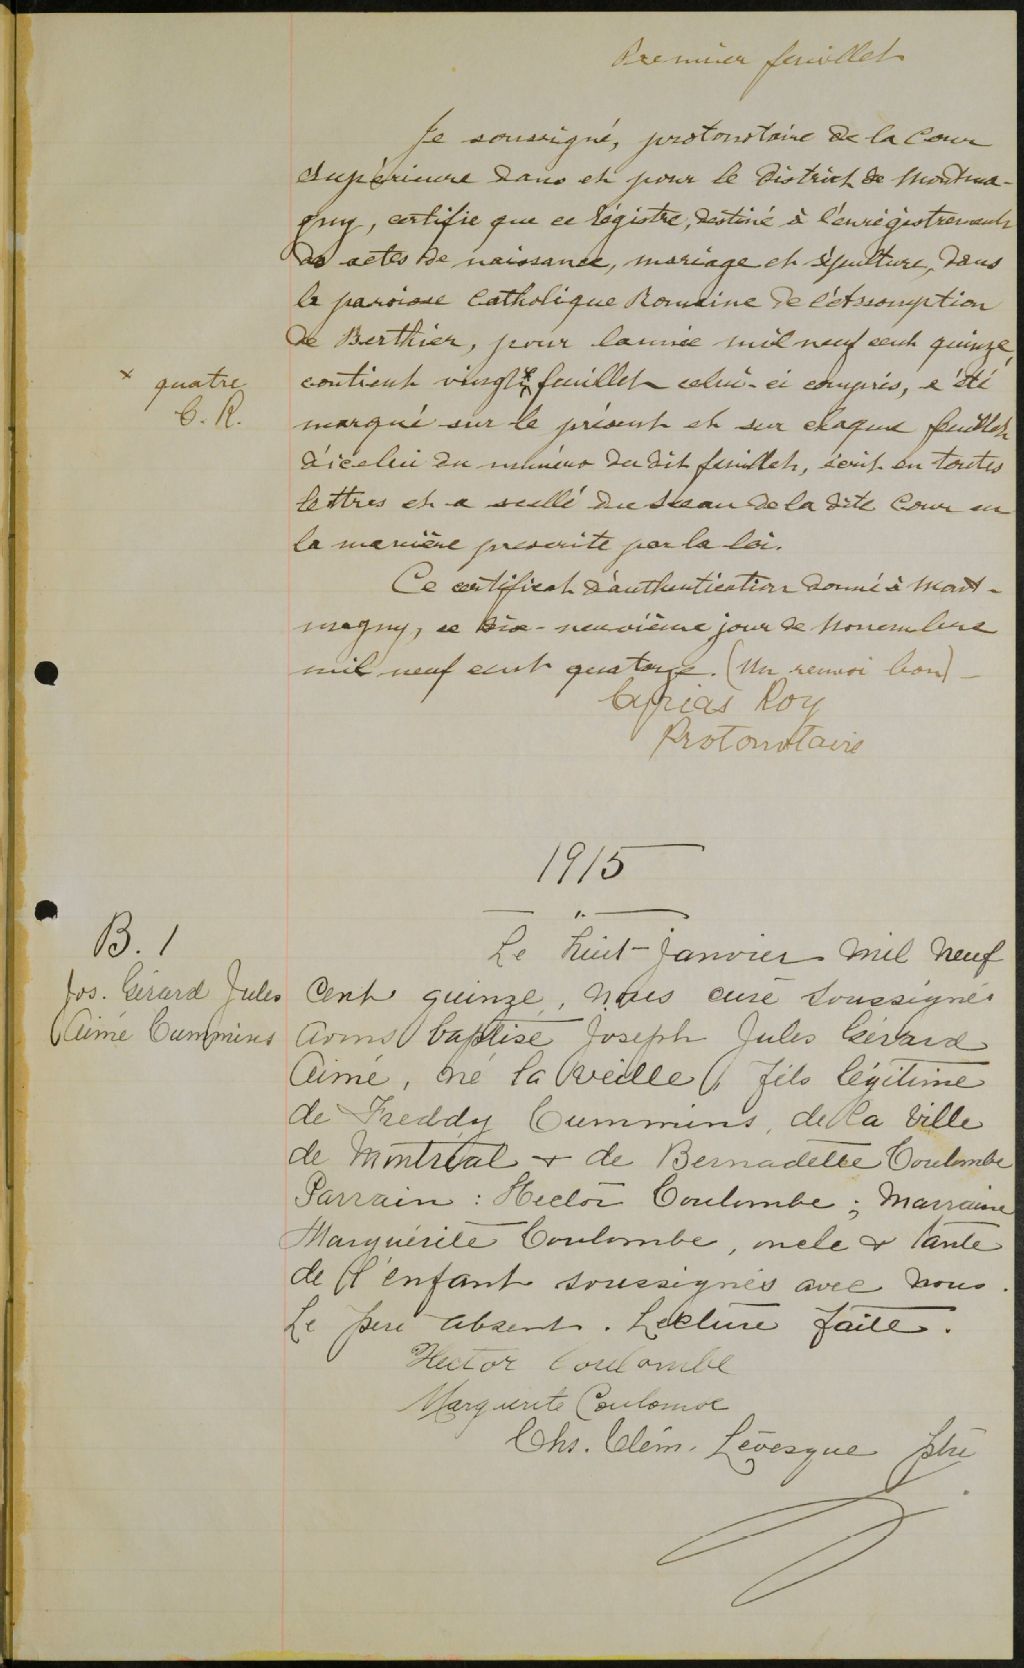 Premier feuillet
Je soussigné, protonotaire de la Cour
Supérieure dans et pour le District de Montma-
gny, certifie que ce régistre, destiné à l'enrégistrement
des actes de naissance, mariage et sépulture, dans
la paroisse Catholique Romaine de l'Assomption
de Berthier, pour l'année mil neuf cent quinze,
contient vingt x feuillets celui-ci compris, a été
x quatre
C. R.
marqué sur le présent et sur chaque feuillet
d'icelui du numéro du dit feuillet, écrit en toutes
lettres et a scellé du sceau de la dite Cour en
la manière prescrite par la loi.
Ce certificat d'authentication donné à Mont-
magny, ce dix-neuvième jour de Novembre
mil neuf cent quatorze. (Un renvoi bon) -
Cyprias Roy
Protonotaire
1915
B. 1
Jos. Gérard Jules
Aimé Cummins
Le huit Janvier mil neuf
cent quinze, nous curé soussigné
avons baptisé Joseph Jules Gérard
Aimé, né la veille, fils légitime
de Freddy Cummins, de la ville
de Montréal & de Bernadette Coulombe
Parrain : Hector Coulombe ; Marraine
Marguérite Coulombe, oncle & tante
de l'enfant soussignés avec nous.
Le père absent. Lecture faite.
Hector Coulombe
Marguerite Coulombe
Chs. Clém. Lévesque ptre